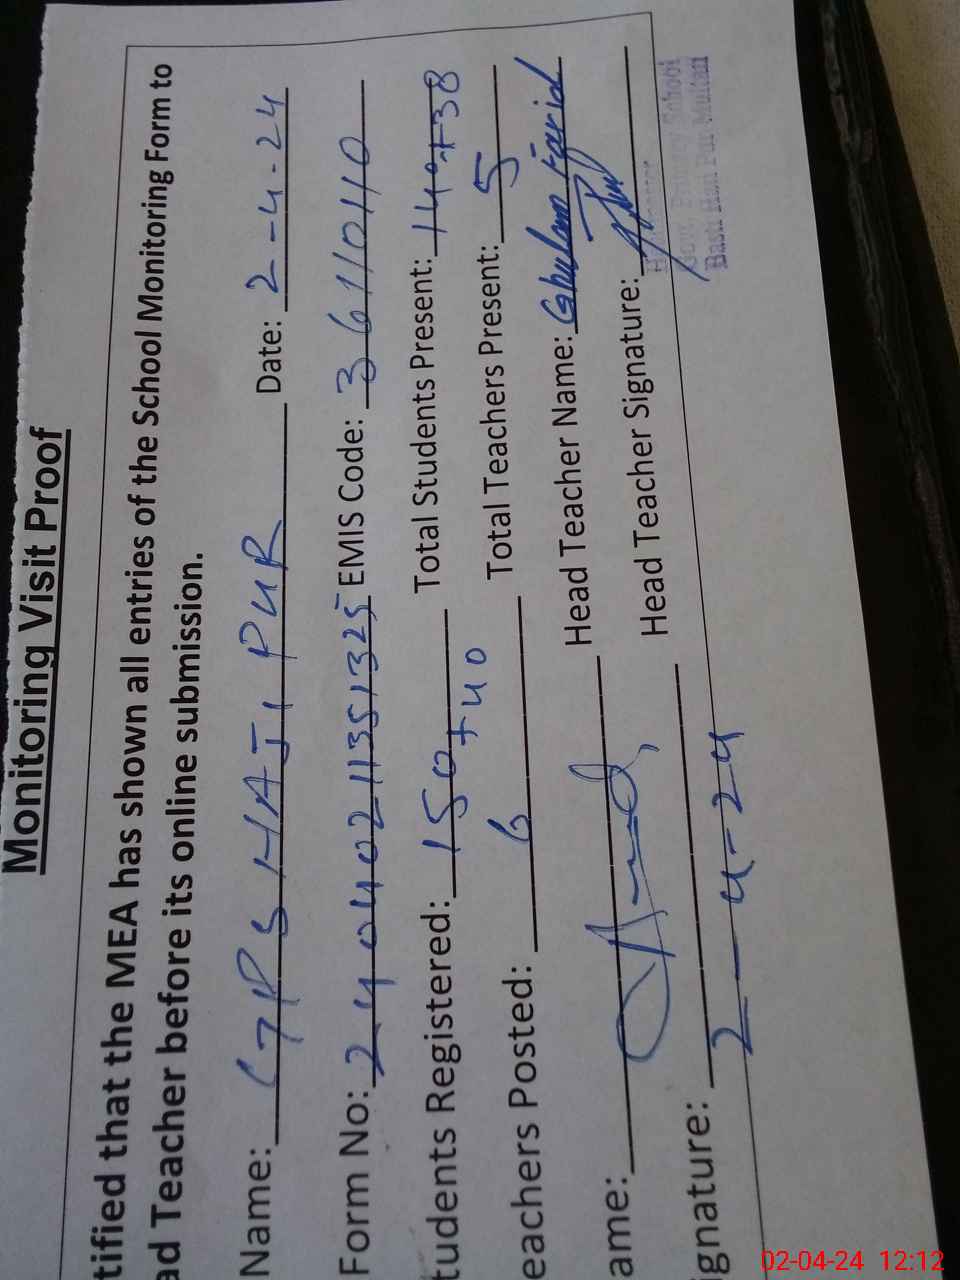 Monitoring Visit Proof
tified that the MEA has shown all entries of the School Monitoring Form to
ad Teacher before its online submission.
Name: GPS HAJI PUR Date: 2-4-24
Form No: 24040211351325 EMIS Code: 36110110
tudents Registered: 150+40 Total Students Present: 140+38
eachers Posted: 6 Total Teachers Present: 5
ame: Head Teacher Name: Ghulam Farid
ignature: Head Teacher Signature:
2-4-24
Govt. Primary School
Basti Haji Pur Multan
02-04-24 12:12